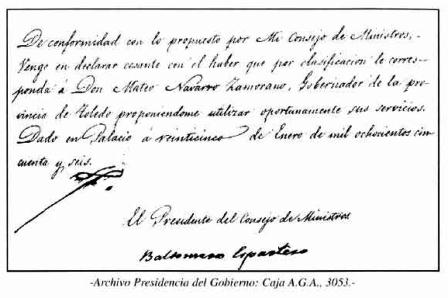 De conformidad con lo propuesto por Mi Consejo de Ministros,-
Vengo en declarar cesante con el haber que por clasificacion le corres-
ponda á Don Mateo Navarro Zamorano, Gobernador de la pro-
vincia de Toledo proponiendome utilizar oportunamente sus servicios.
Dado en Palacio á veinticinco de Enero de mil ochocientos cin
cuenta y seis.
El Presidente del Consejo de Ministros
Baldomero Espartero
-Archivo Presidencia del Gobierno: Caja A.G.A., 3053.-